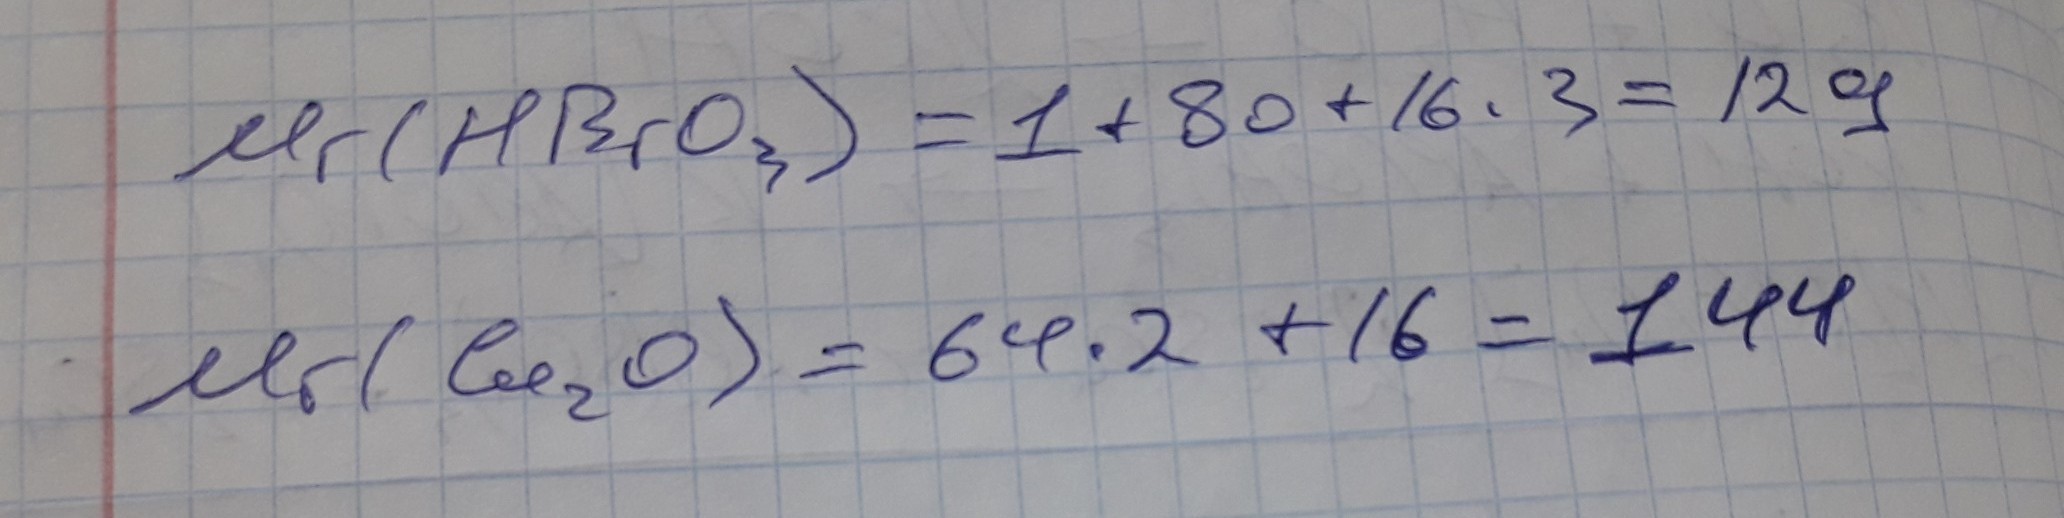 Mr(HBrO₃) = 1 + 80 + 16 · 3 = 129
Mr(Cu₂O) = 64 · 2 + 16 = 144